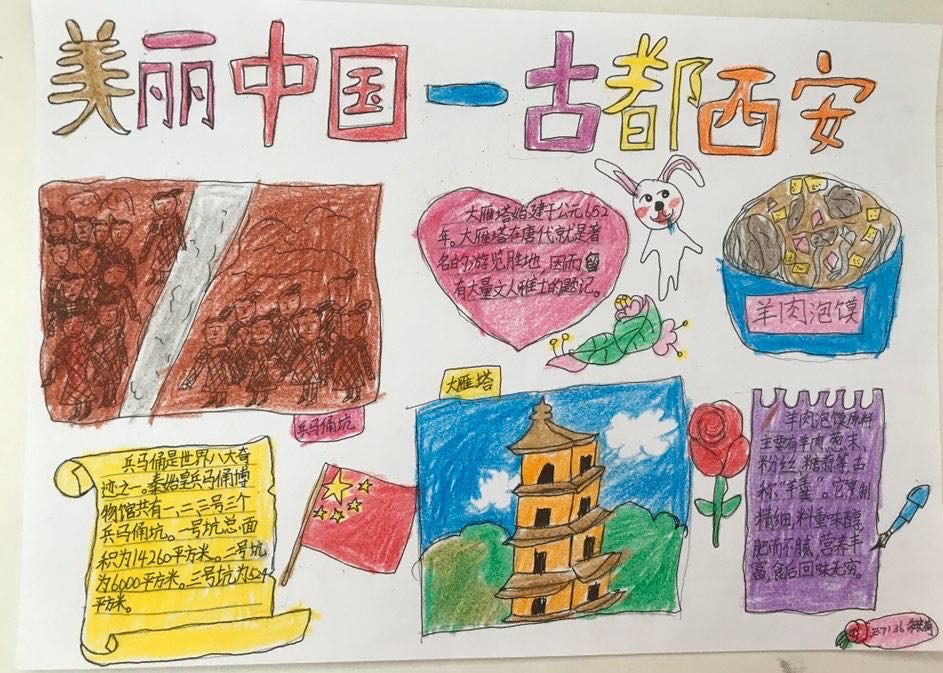 美丽中国一古都西安
大雁塔始建于公元652
年。大雁塔在唐代就是著
名的游览胜地,因而留
有大量文人雅士的题记。
羊肉泡馍
兵马俑坑
兵马俑是世界八大奇
迹之一。秦始皇兵马俑博
物馆共有一、二、三号三个
兵马俑坑。一号坑总面
积为14260平方米。二号坑
为6000平方米。三号坑为524
平方米。
大雁塔
羊肉泡馍原料
主要有羊肉、葱末、
粉丝、糖蒜等古
称“羊羹”。它烹制
精细,料重味醇,
肥而不腻,营养丰
富,食后回味无穷。